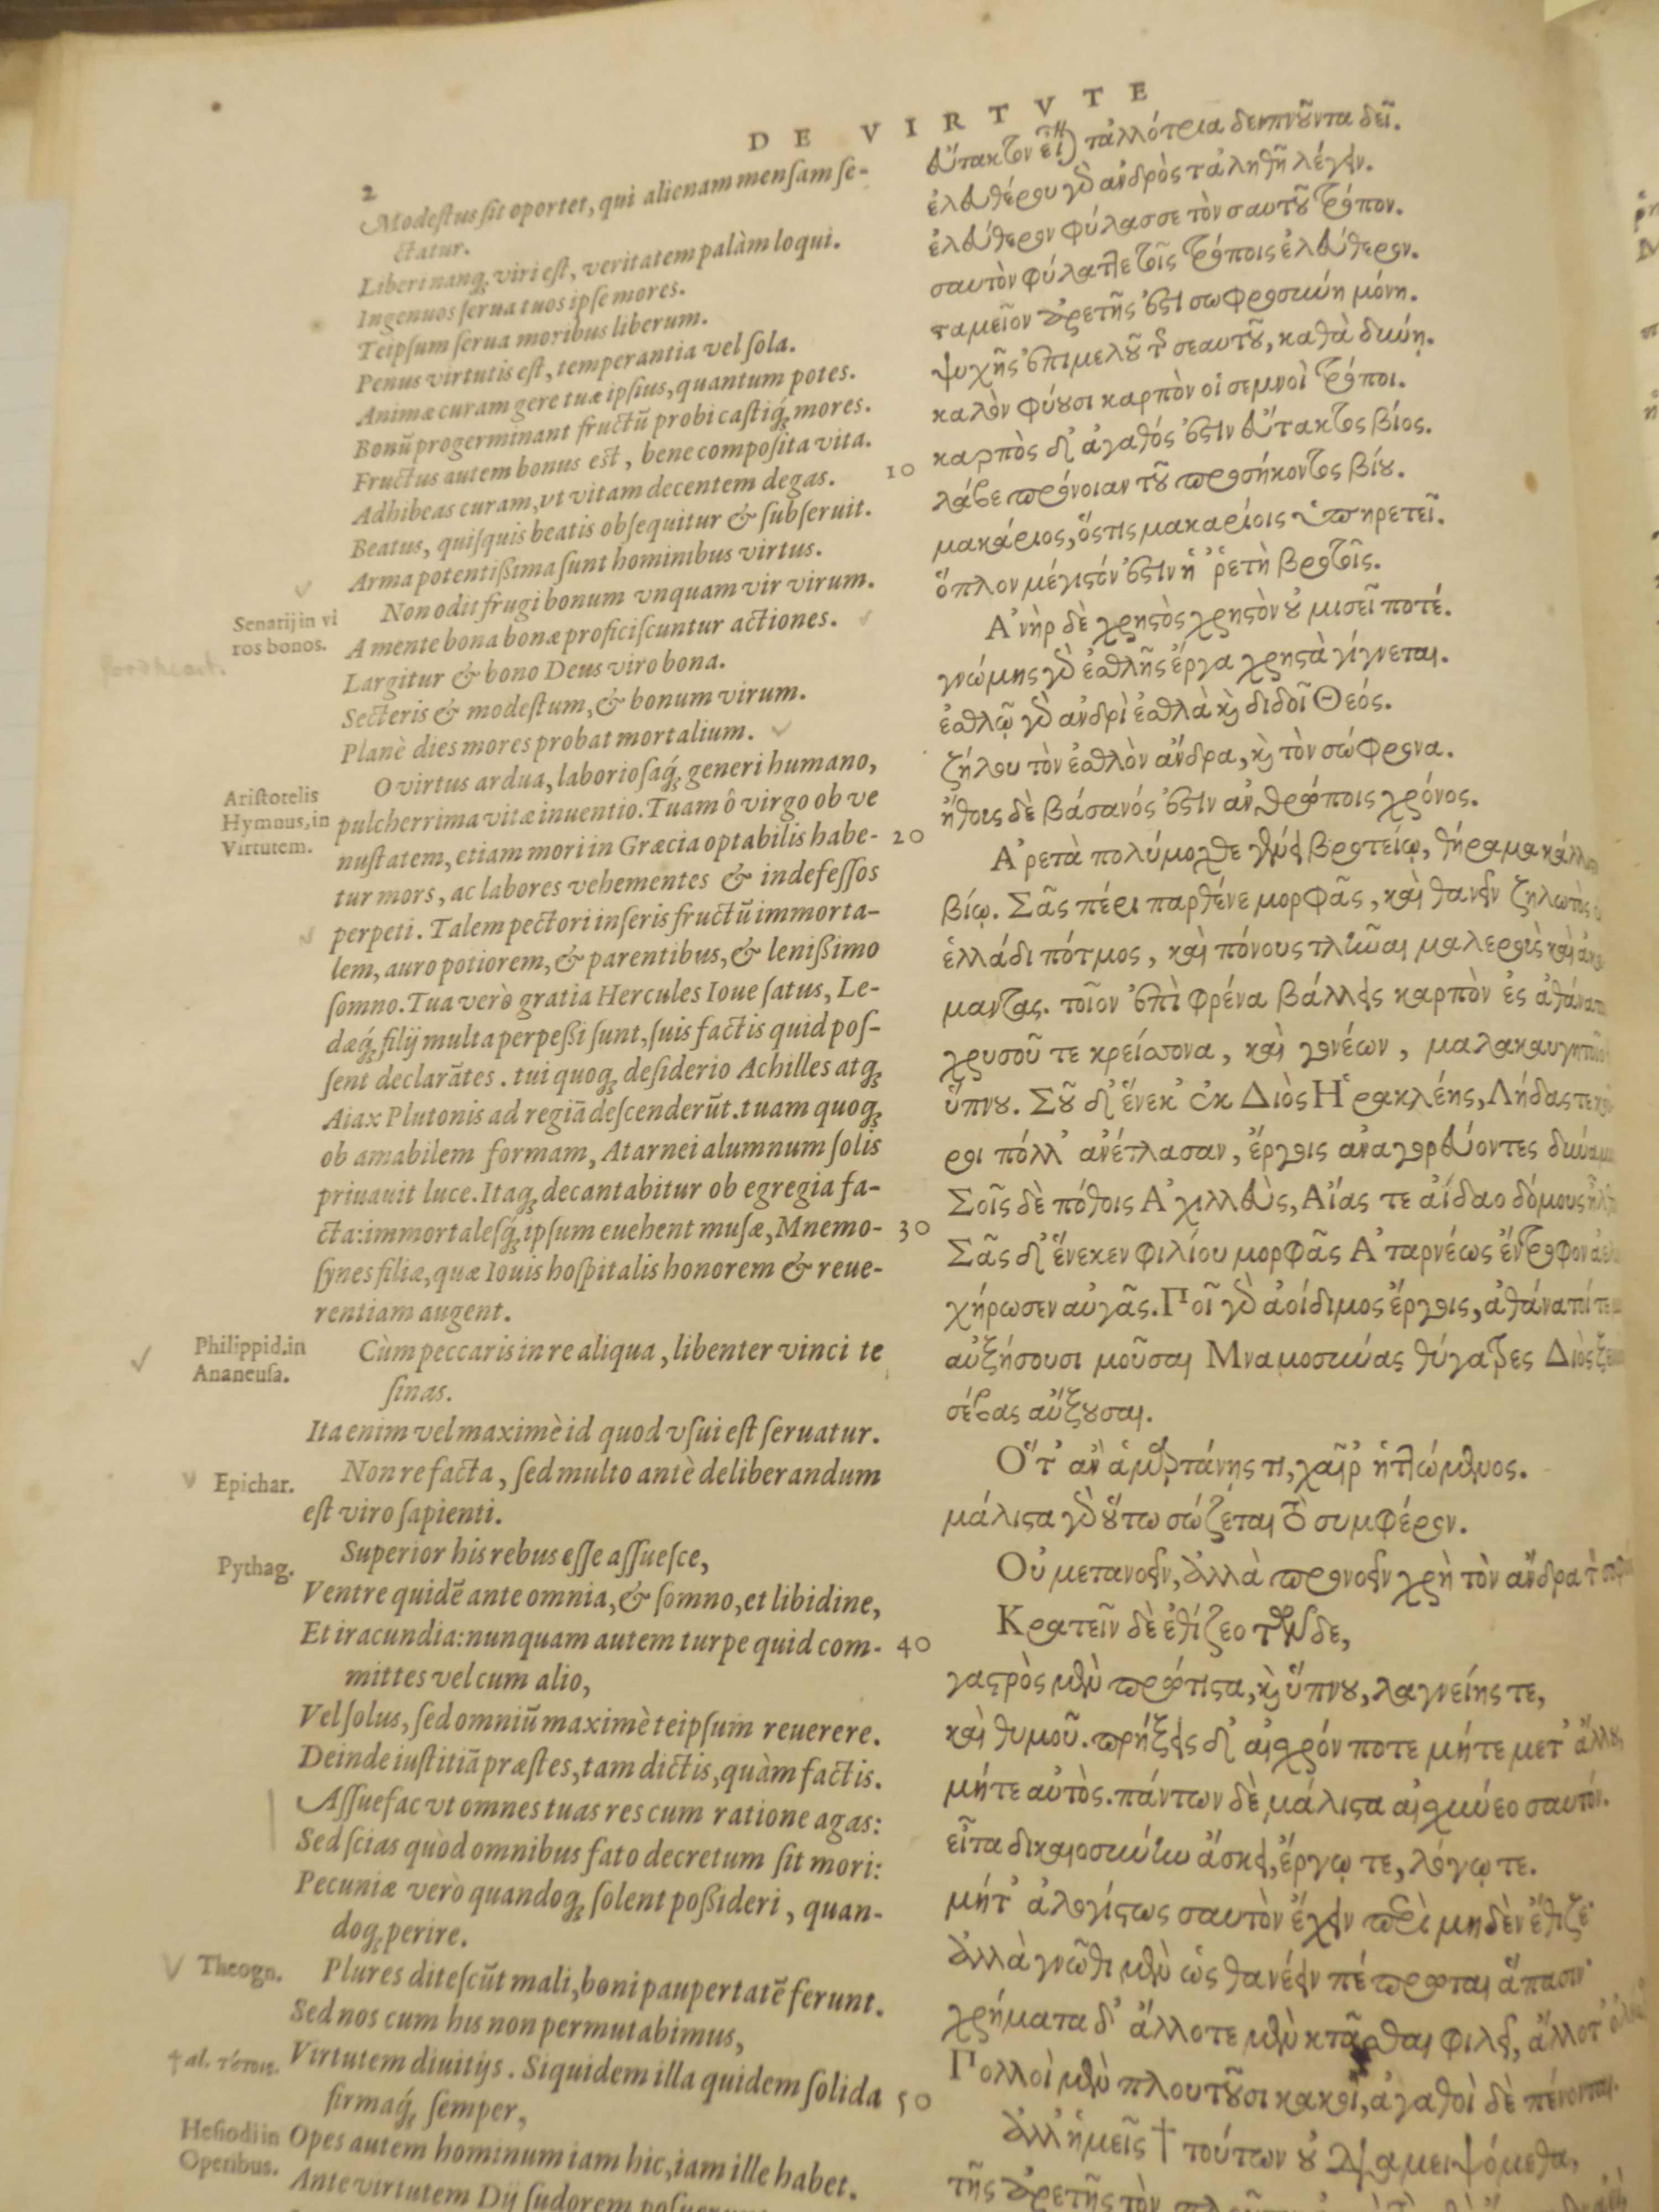 DE VIRTVTE
2
Modestus sit oportet, qui alienam mensam se-
ctatur.
Liberi nanq; viri est, veritatem palàm loqui.
Ingenuos serua tuos ipse mores.
Teipsum serua moribus liberum.
Penus virtutis est, temperantia vel sola.
Animæ curam gere tuæ ipsius, quantum potes.
Bonũ progerminant fructũ probi castiq́; mores.
Fructus autem bonus est, bene composita vita.
Adhibeas curam, vt vitam decentem degas.
Beatus, quisquis beatis obsequitur & subseruit.
Arma potentißima sunt hominibus virtus.
Senarij in vi
ros bonos.
Non odit frugi bonum vnquam vir virum.
A mente bona bonæ proficiscuntur actiones.
Largitur & bono Deus viro bona.
Secteris & modestum, & bonum virum.
Planè dies mores probat mortalium.
Aristotelis
Hymnus, in
Virtutem.
O virtus ardua, laboriosaq́; generi humano,
pulcherrima vitæ inuentio. Tuam ô virgo ob ve
nustatem, etiam mori in Græcia optabilis habe-
tur mors, ac labores vehementes & indefessos
perpeti. Talem pectori inseris fructũ immorta-
lem, auro potiorem, & parentibus, & lenißimo
somno. Tua verò gratia Hercules Ioue satus, Le-
dæq́; filij multa perpeßi sunt, suis factis quid pos-
sent declarãtes. tui quoq; desiderio Achilles atq;
Aiax Plutonis ad regiã descenderũt. tuam quoq;
ob amabilem formam, Atarnei alumnum solis
priuauit luce. Itaq; decantabitur ob egregia fa-
cta: immortalesq́; ipsum euehent musæ, Mnemo-
synes filiæ, quæ Iouis hospitalis honorem & reue-
rentiam augent.
Philippid. in
Ananeusa.
Cùm peccaris in re aliqua, libenter vinci te
sinas.
Ita enim vel maximè id quod vsui est seruatur.
Epichar.
Non re facta, sed multo antè deliberandum
est viro sapienti.
Pythag.
Superior his rebus esse assuesce,
Ventre quidẽ ante omnia, & somno, et libidine,
Et iracundia: nunquam autem turpe quid com-
mittes vel cum alio,
Vel solus, sed omniũ maximè teipsum reuerere.
Deinde iustitiã præstes, tam dictis, quàm factis.
Assuefac vt omnes tuas res cum ratione agas:
Sed scias quòd omnibus fato decretum sit mori:
Pecuniæ verò quandoq; solent poßideri, quan-
doq; perire.
Theogn.
Plures ditescũt mali, boni paupertatẽ ferunt.
Sed nos cum his non permutabimus,
† al. τότοις.
Virtutem diuitijs. Siquidem illa quidem solida
firmaq́; semper,
Hesiodi in
Operibus.
Opes autem hominum iam hic, iam ille habet.
Ante virtutem Dij sudorem
10
20
30
40
50
εὔτακτον εἶναι τἀλλότρια δειπνοῦντα δεῖ.
ἐλευθέρου γὰρ ἀνδρὸς τἀληθῆ λέγειν.
ἐλεύθερον φύλασσε τὸν σαυτοῦ τρόπον.
σαυτὸν φύλαττε τοῖς τρόποις ἐλεύθερον.
ταμεῖον ἀρετῆς ἐστι σωφροσύνη μόνη.
ψυχῆς ἐπιμελοῦ τῆς σεαυτοῦ, καθὰ δύνῃ.
καλὸν φύουσι καρπὸν οἱ σεμνοὶ τρόποι.
καρπὸς δ' ἀγαθός ἐστιν εὔτακτος βίος.
λάβε πρόνοιαν τοῦ προσήκοντος βίου.
μακάριος, ὅστις μακαρίοις ὑπηρετεῖ.
ὅπλον μέγιστόν ἐστιν ἡ ἀρετὴ βροτοῖς.
Ἀνὴρ δὲ χρηστὸς χρηστὸν οὐ μισεῖ ποτέ.
γνώμης γὰρ ἐσθλῆς ἔργα χρηστὰ γίγνεται.
ἐσθλῷ γὰρ ἀνδρὶ ἐσθλὰ καὶ διδοῖ Θεός.
ζήλου τὸν ἐσθλὸν ἄνδρα, καὶ τὸν σώφρονα.
ἤθους δὲ βάσανός ἐστιν ἀνθρώποις χρόνος.
Ἀρετὰ πολύμοχθε γένει βροτείῳ, θήραμα
βίῳ. Σᾶς πέρι παρθένε μορφᾶς, καὶ θανεῖν ζηλωτὸς
ἑλλάδι πότμος, καὶ πόνους τλῆναι μαλεροὺς καὶ
μαντας. τοῖον ἐπὶ φρένα βάλλεις καρπὸν ἐς
χρυσοῦ τε κρείσσονα, καὶ γονέων,
ὕπνου. Σοῦ δ' ἕνεκ' ἐκ Διὸς Ἡρακλέης, Λήδας τε
ροι πόλλ' ἀνέτλασαν, ἔργοις ἀναγορεύοντες
Σοῖς δὲ πόθοις Ἀχιλλεὺς, Αἴας τε ἀΐδαο δόμους
Σᾶς δ' ἕνεκεν φιλίου μορφᾶς Ἀταρνέως ἔντροφον
χήρωσεν αὐγᾶς. Τοῖ γὰρ ἀοίδιμος ἔργοις,
αὐξήσουσι μοῦσαι Μναμοσύνας θύγατρες Διὸς
σέβας αὔξουσαι.
Ὅτ' ἂν ἁμαρτάνῃς τι, χαῖρ' ἡττώμενος.
μάλιστα γὰρ οὕτω σώζεται τὸ συμφέρον.
Οὐ μετανοεῖν, ἀλλὰ προνοεῖν χρὴ τὸν ἄνδρα τὸν
Κρατεῖν δὲ ἐθίζεο τῶνδε,
γαστρὸς μὲν πρώτιστα, καὶ ὕπνου, λαγνείης τε,
καὶ θυμοῦ. πρήξεις δ' αἰσχρόν ποτε μήτε μετ' ἄλλου,
μήτε αὐτὸς. πάντων δὲ μάλιστα αἰσχύνεο σαυτόν.
εἶτα δικαιοσύνην ἄσκει, ἔργῳ τε, λόγῳ τε.
μήτ' ἀλογίστως σαυτὸν ἔχειν περὶ μηδὲν ἔθιζε·
ἀλλὰ γνῶθι μὲν ὡς θανέειν πέπρωται ἅπασιν·
χρήματα δ' ἄλλοτε μὲν κτᾶσθαι φιλεῖ, ἄλλοτ'
Πολλοὶ μὲν πλουτοῦσι κακοὶ, ἀγαθοὶ δὲ πένονται.
ἀλλ' ἡμεῖς † τούτων οὐ διαμειψόμεθα,
τῆς ἀρετῆς τὸν